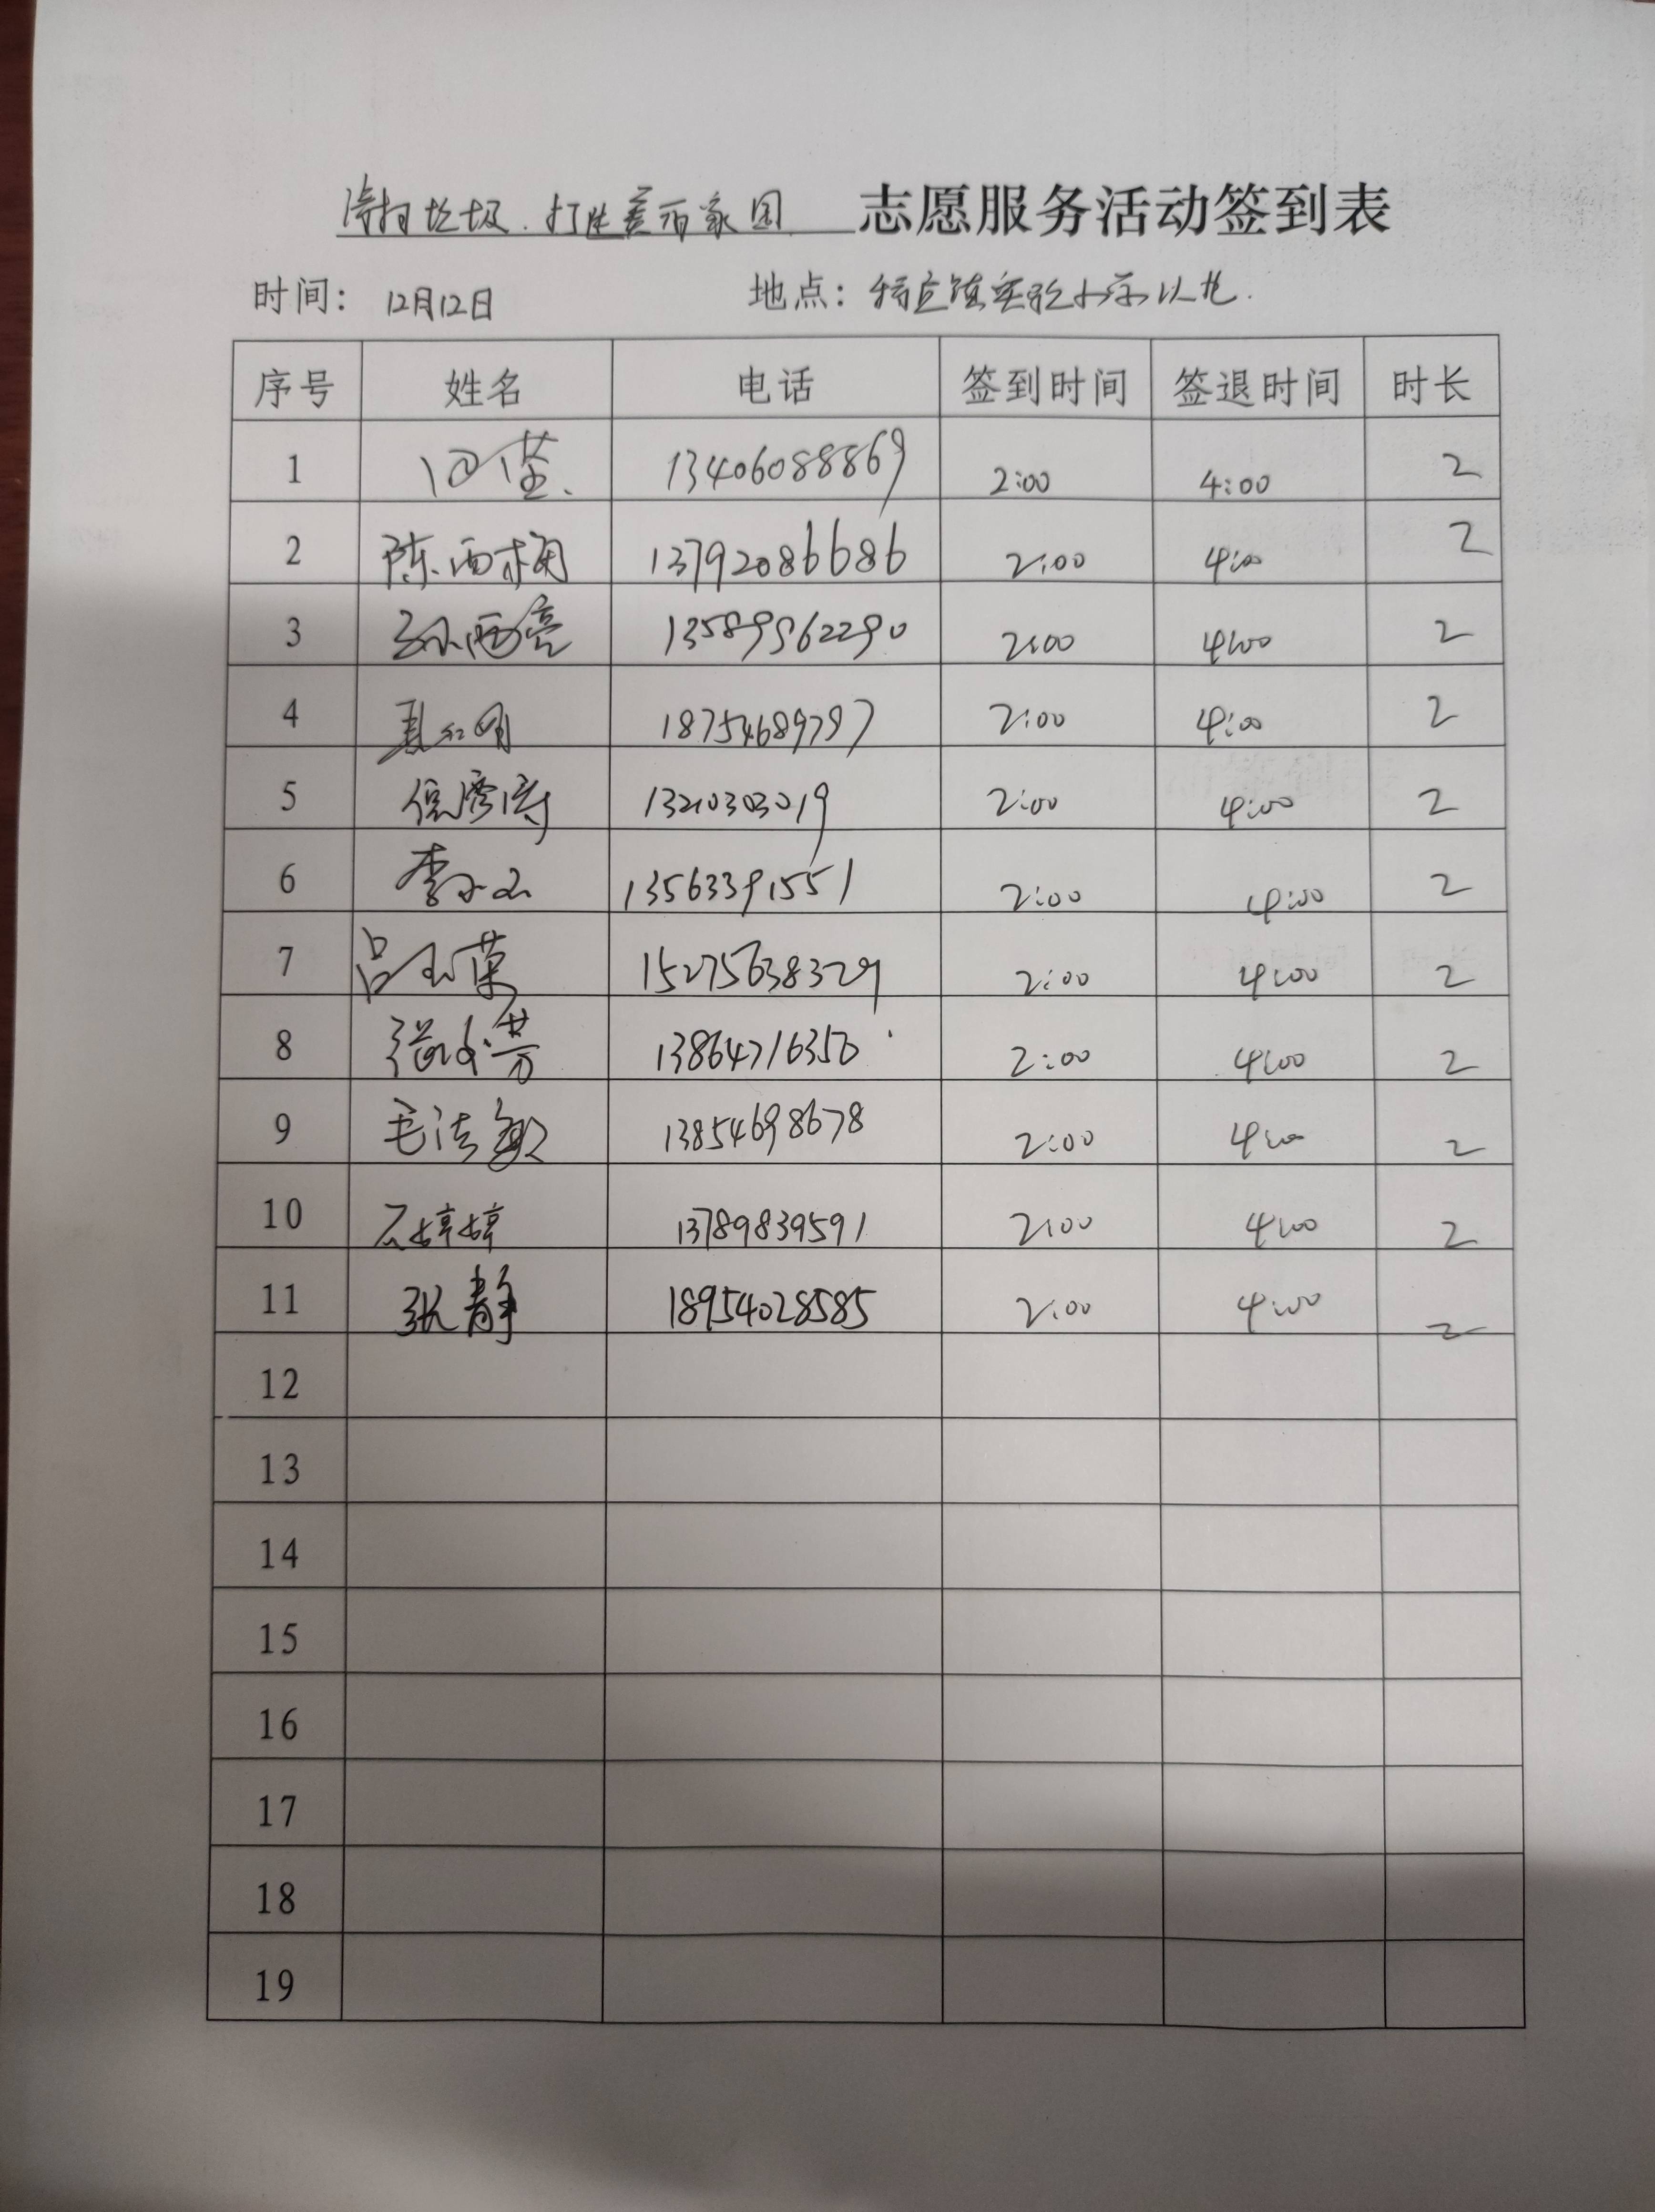 清扫垃圾.打造美丽家园 志愿服务活动签到表
时间: 12月12日 地点: 镇实验小学以北.
序号 姓名 电话 签到时间 签退时间 时长
1 13406088869 2:00 4:00 2
2 陈西梅 13792086686 2:00 4:00 2
3 孙西亮 13589962290 2:00 4:00 2
4 18754689797 2:00 4:00 2
5 1320303019 2:00 4:00 2
6 李 13563391551 2:00 4:00 2
7 吕玉菊 15275638329 2:00 4:00 2
8 芳 13864716350 2:00 4:00 2
9 毛法敏 13854698678 2:00 4:00 2
10 石婷婷 13789839591 2:00 4:00 2
11 张静 18954028585 2:00 4:00 2
12
13
14
15
16
17
18
19